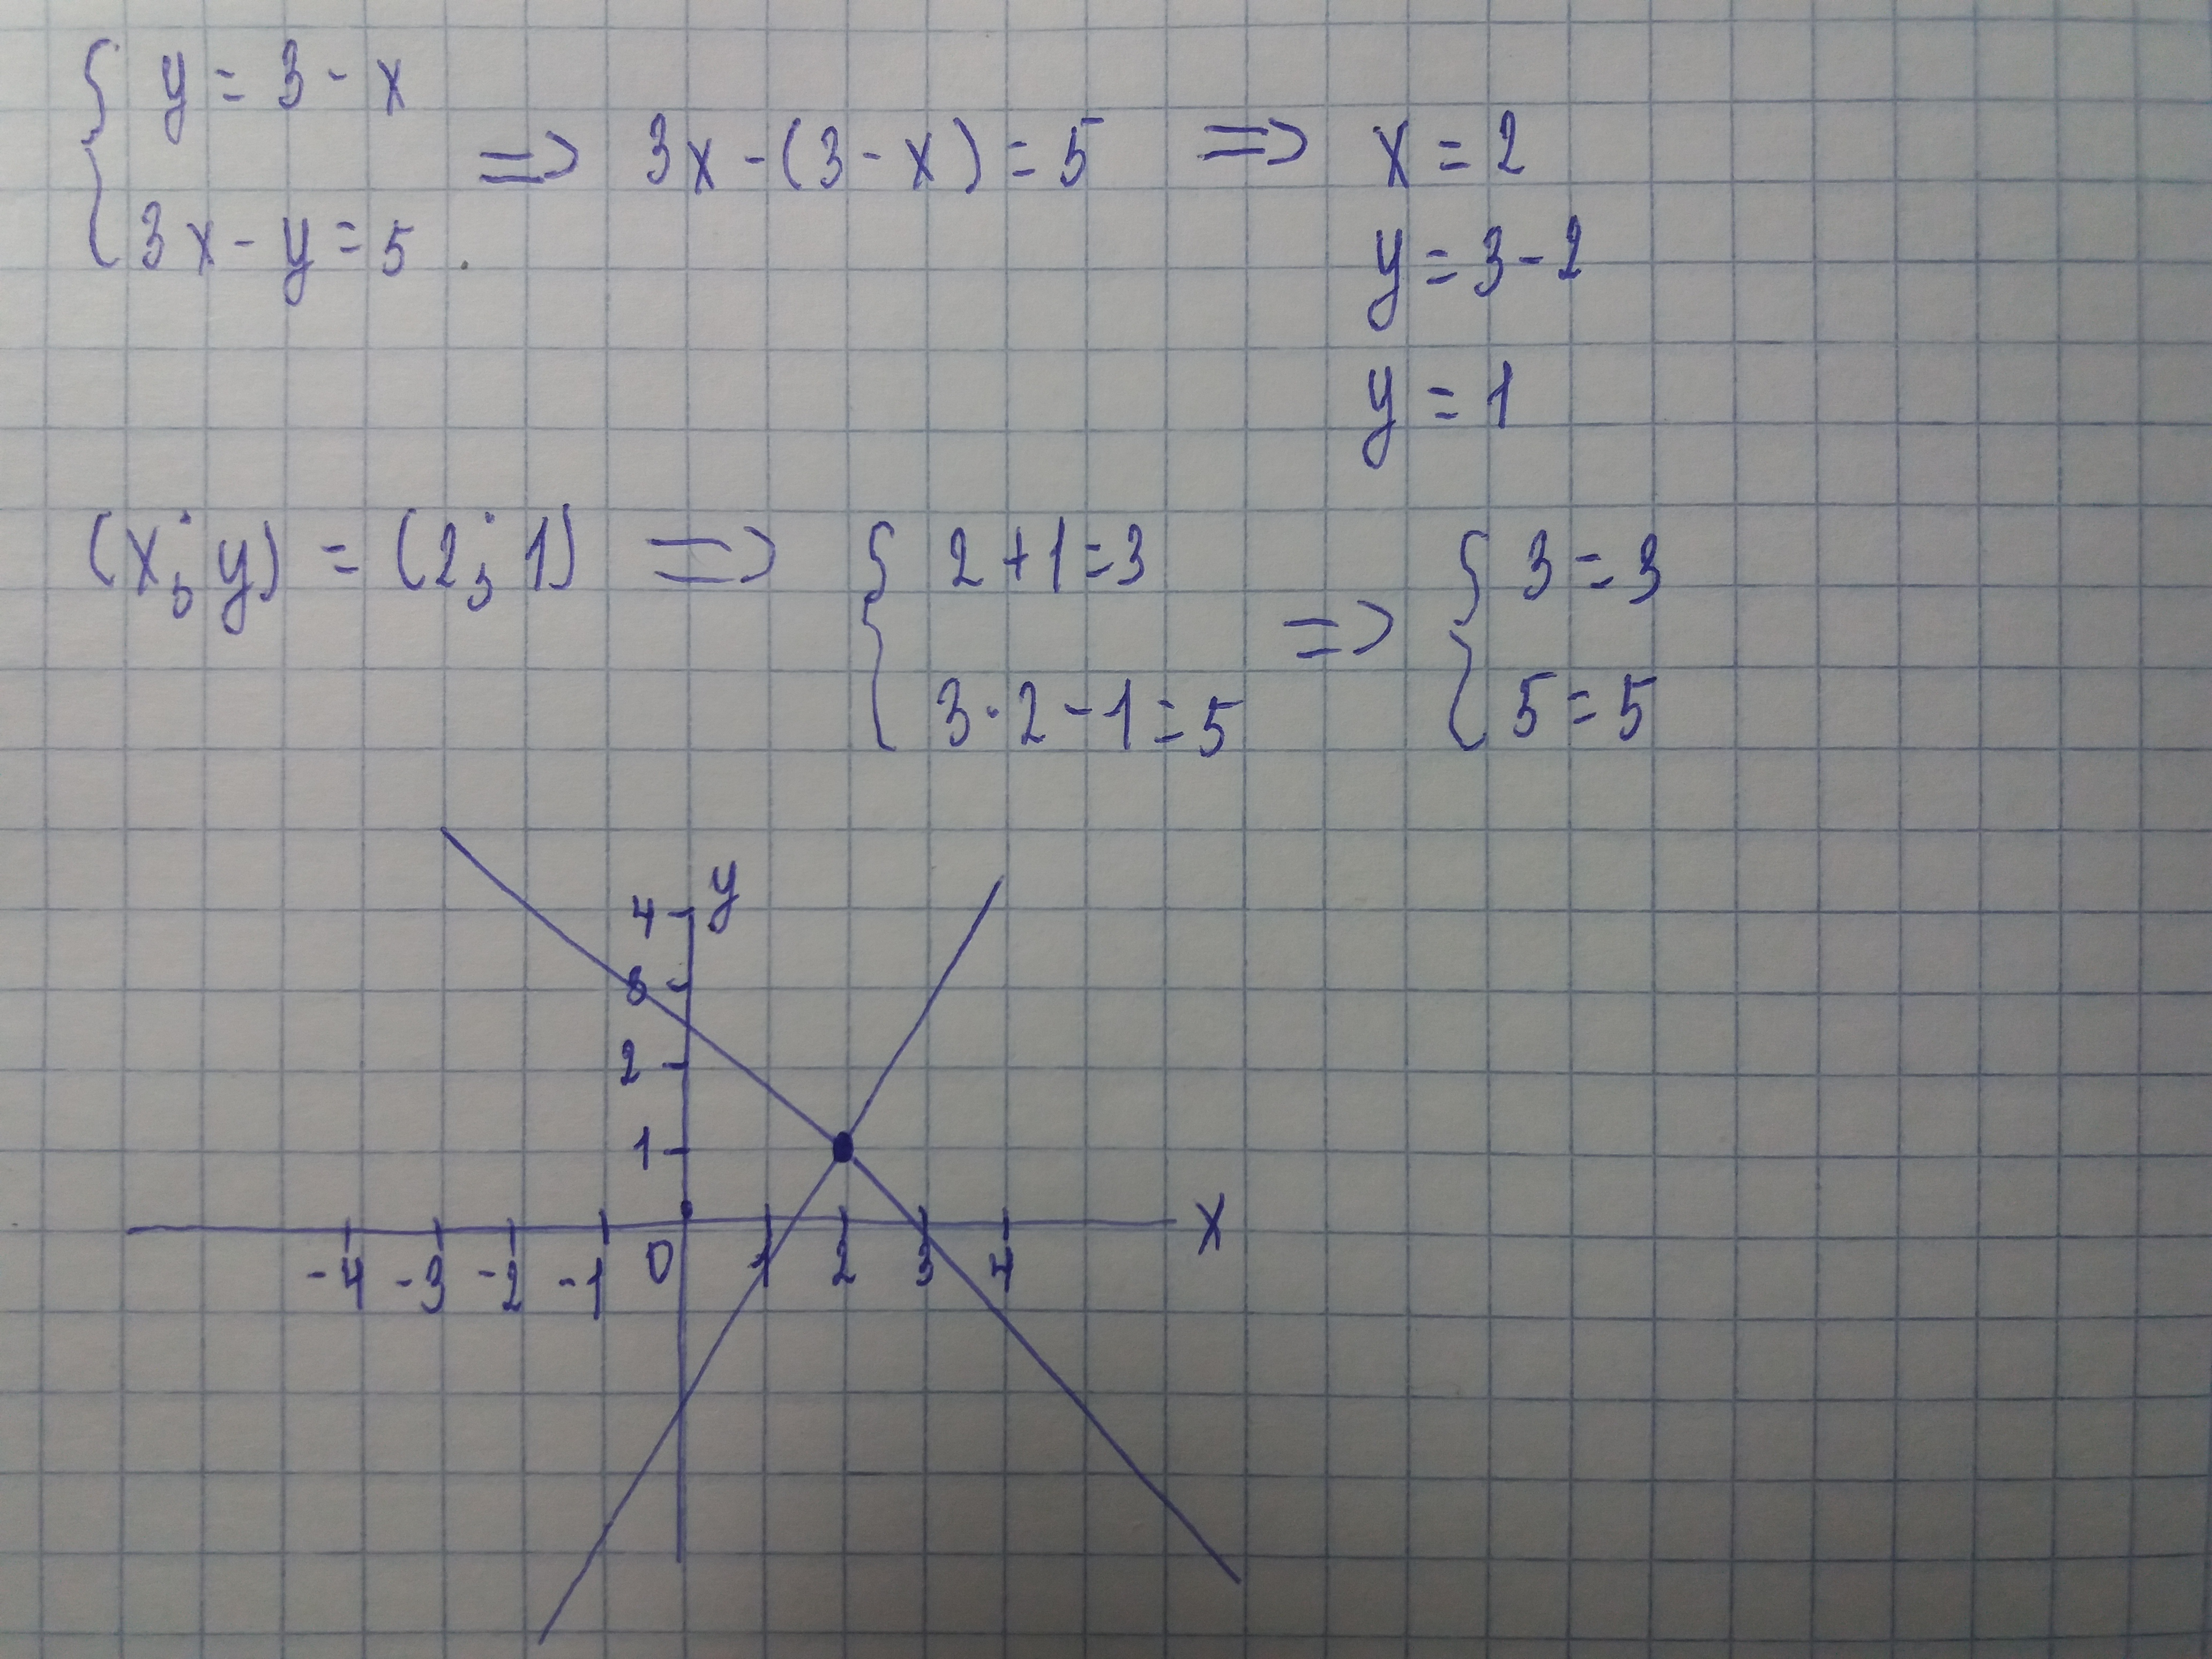 { y = 3 - x
3x - y = 5 . => 3x - (3 - x) = 5 => x = 2
y = 3 - 2
y = 1
(x; y) = (2; 1) => { 2 + 1 = 3
3 · 2 - 1 = 5 => { 3 = 3
5 = 5
y
4
3
2
1
x
-4 -3 -2 -1 0 1 2 3 4